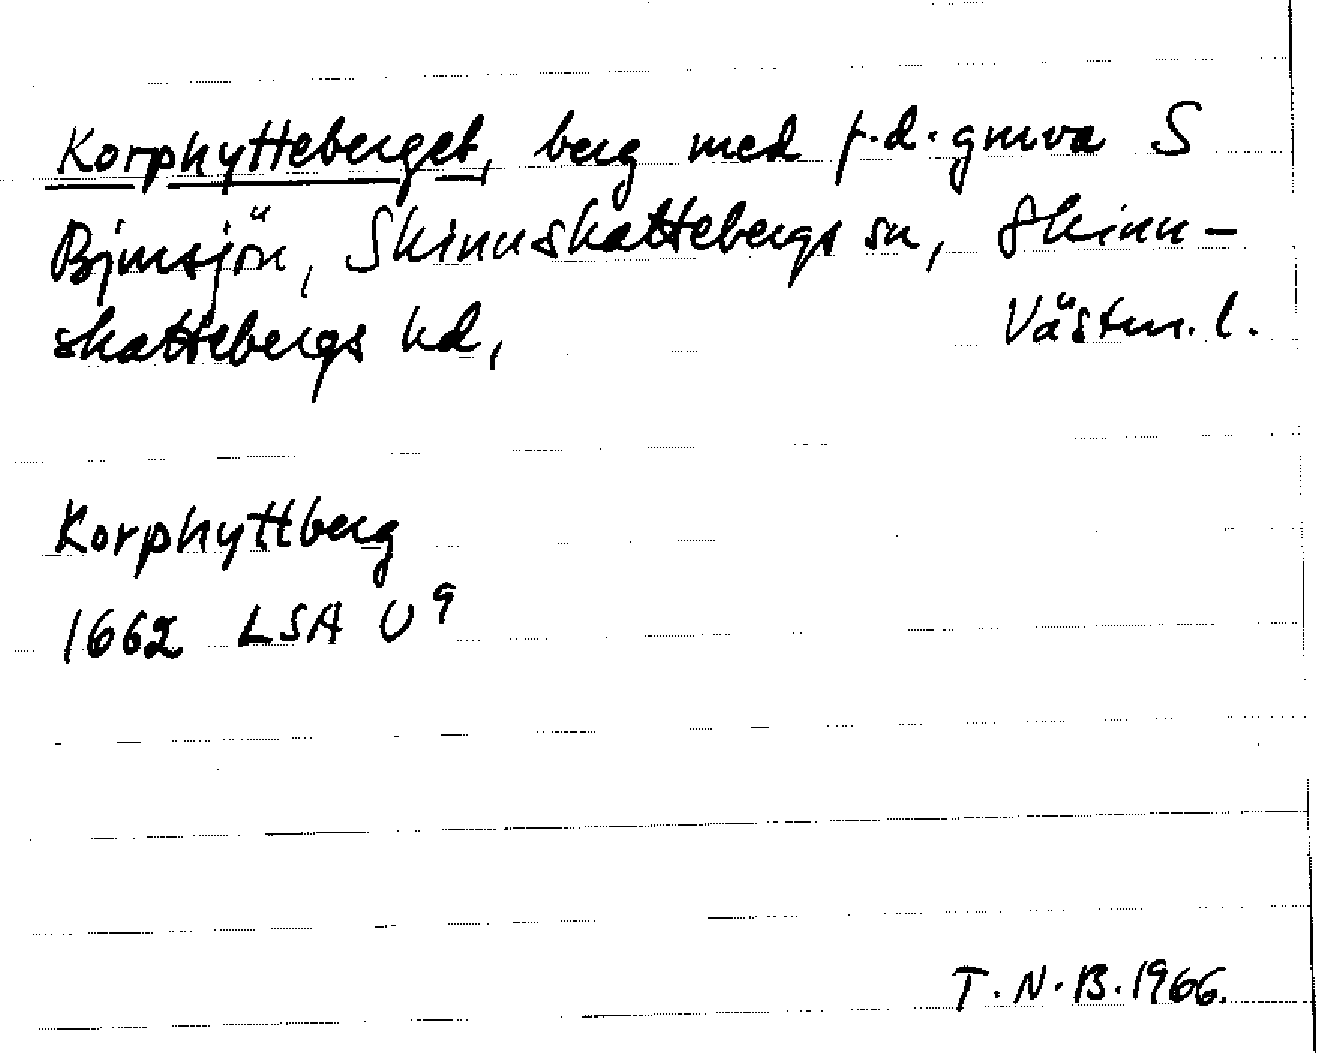 Korphytteberget, berg med f.d. gruva S
Bjursjön, Skinnskattebergs sn, Skinn-
skattebergs hd, Västm. l.
Korphyttberg
1662 LSA U 9
T.N.B. 1966.